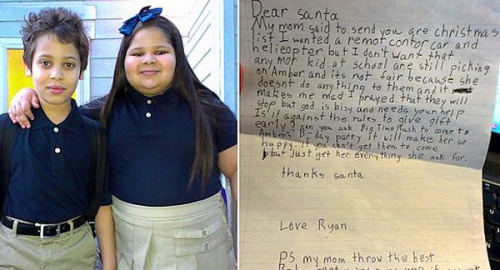 Dear santa
My mom said to send you are christmas
list I wanted a remot contor car and
helicopter but I don't want that
any mor kid at school are still picking
on Amber and its not fair because she
doesnt do anything to them and it
makes me med I prayed that they will
stop but god is bisy and needs your help
Is it against the rules to give gift
early? can you ask Big Time Rush to come to
Ambers B-day party it will make her so
happy. If you can't get them to come
but just get her everything she ask for.
thanks santa
Love Ryan
PS my mom throw the best